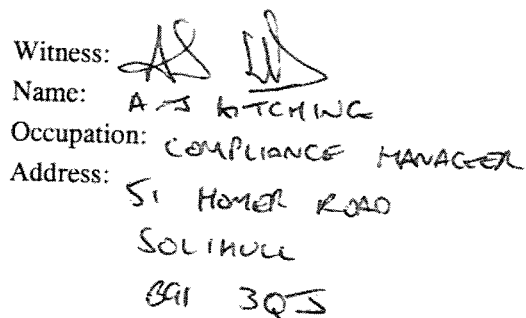 Witness:
Name: A J KITCHING
Occupation: COMPLIANCE MANAGER
Address: 51 HOMER ROAD
SOLIHULL
B91 3QJ